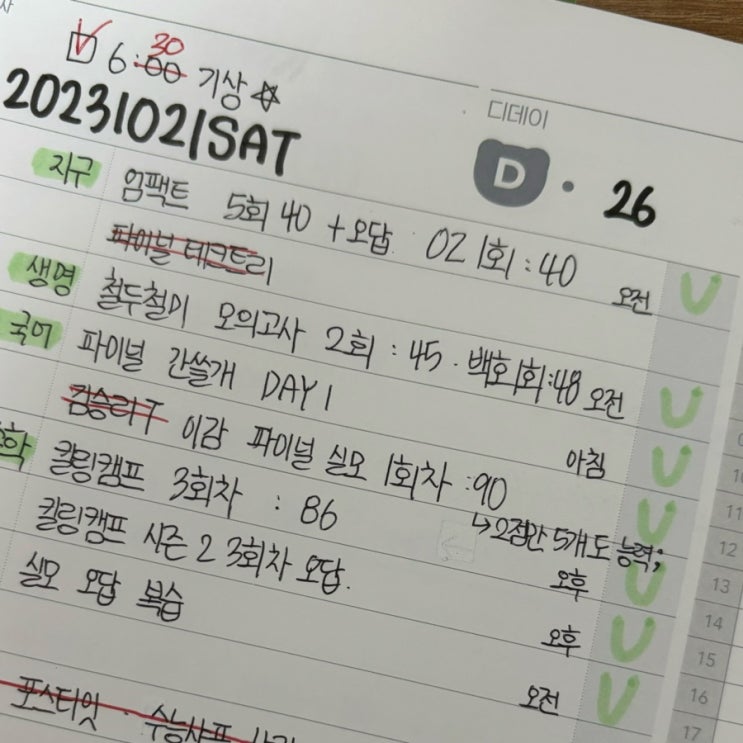 6:00 30 기상
20231021SAT
디데이
D · 26
지구 엄팩트 5회 40 + 오답. OZ 1회 : 40
파이널 테크트리 오전
생명 철두철미 모의고사 2회 : 45 · 백호 1회:48 오전
국어 파이널 간쓸개 DAY 1 아침
김승리T 이감 파이널 실모 1회차 : 90
↳2점만 5개도 능력;
학 킬링캠프 3회차 : 86 오후
킬링캠프 시즌 2 3회차 오답. 오후
실모 오답 복습 오전
포스티잇 · 수능샤프
10
11
12
13
14
15
16
17